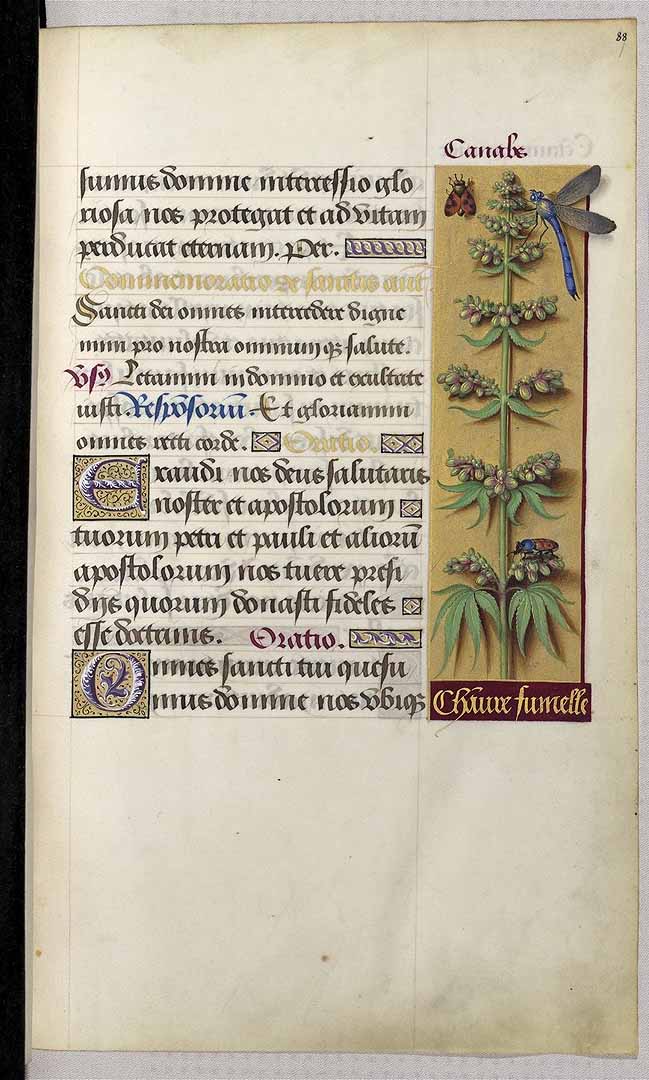 88
Canabe
sumus domine intercessio glo
riosa nos protegat et ad vitam
perducat eternam. Per.
Commemoratio de sanctis ant
Sancti dei omnes intercedere digne
mini pro nostra omnium q; salute.
Letamini in domino et exultate
iusti. Responsoriū. Et gloriamini
omnes recti corde. Oratio.
Exaudi nos deus salutaris
noster et apostolorum
tuorum petri et pauli et aliorū
apostolorum nos tuere presi
dijs quorum donasti fideles
esse doctrinis. Oratio.
Omnes sancti tui quesu
mus domine nos vbiq;
Chāure fumelle